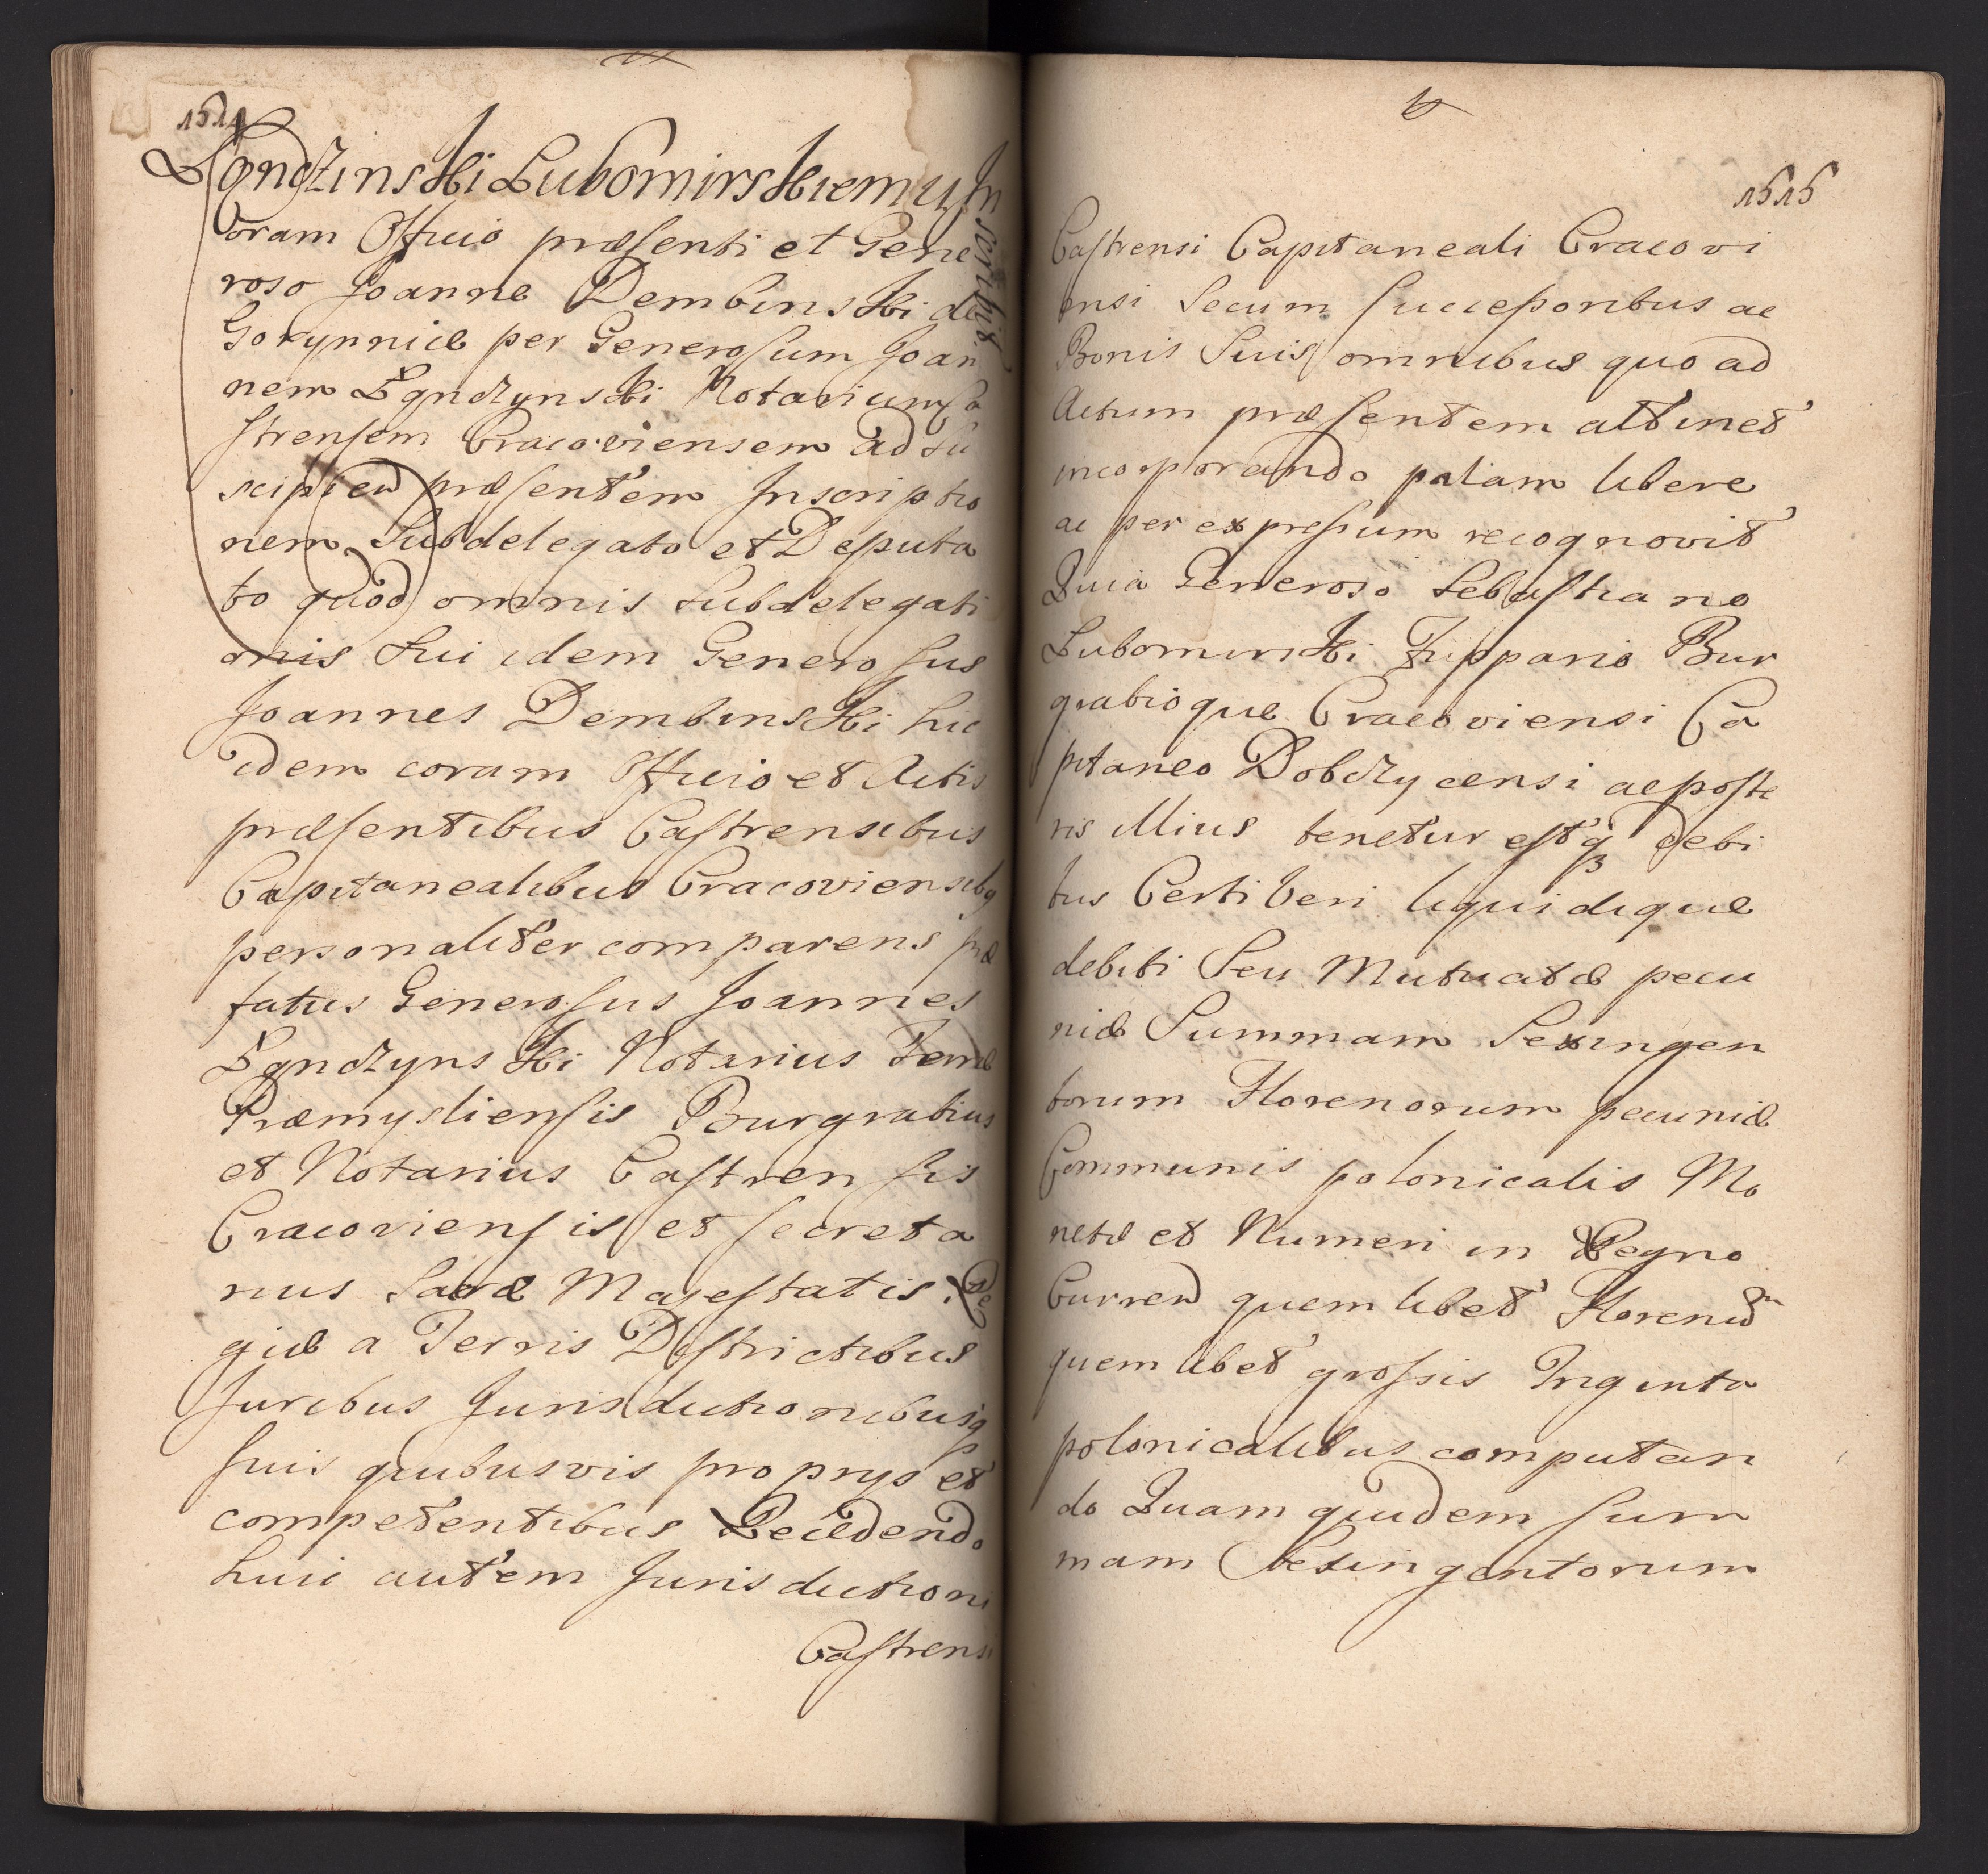 1514
LgndzinsKi LubomirsKiemu In
scribit
Coram Officio præsenti et Gene
roso Joanne DembinsKi de
Gorynnice per Generosum Joan
nem LgndzynsKi Notarium Ca
strensem Cracoviensem ad su
scipiend præsentem Inscriptio
nem Subdelegato et Deputa
to quod omnis subdelegati
onis sui idem Generosus
Joannes DembinsKi hic
idem coram Officio et Actis
præsentibus Castrensibus
Capitanealibus Cracoviensibq
personaliter comparens præ
fatus Generosus Joannes
LgndzynsKi Notarius Terræ
Præmysliensis Burgrabius
et Notarius Castrensis
Cracoviensis et secreta
rius Sacræ Majestatis Re
giæ a Terris Districtibus
Juribus Jurisdictionibusq
suis quibusvis proprys et
competentibus Recedendo
huic autem Jurisdictioni
Castrensi
1515
Castrensi Capitaneali Cracovi
ensi Secum successoribus ac
Bonis Suis omnibus quo ad
Actum præsentem attinet
incorporando palam libere
ac per expressum recognovit
Quia Generoso Sebastiano
LubomirsKi Zuppario Bur
grabioque Cracoviensi Ca
pitaneo Dobczycensi ac poste
ris illius tenetur estq3 debi
tus Certi veri liquidique
debiti Seu Mutuatæ pecu
niæ Summam Sexingen
torum Florenorum pecuniæ
Communis polonicalis Mo
netæ et Numeri in Regno
Curren quemlibet Florenum
quemlibet grossis Triginta
polonicalibus computan
do Quam quidem sum
mam Sexingentorum